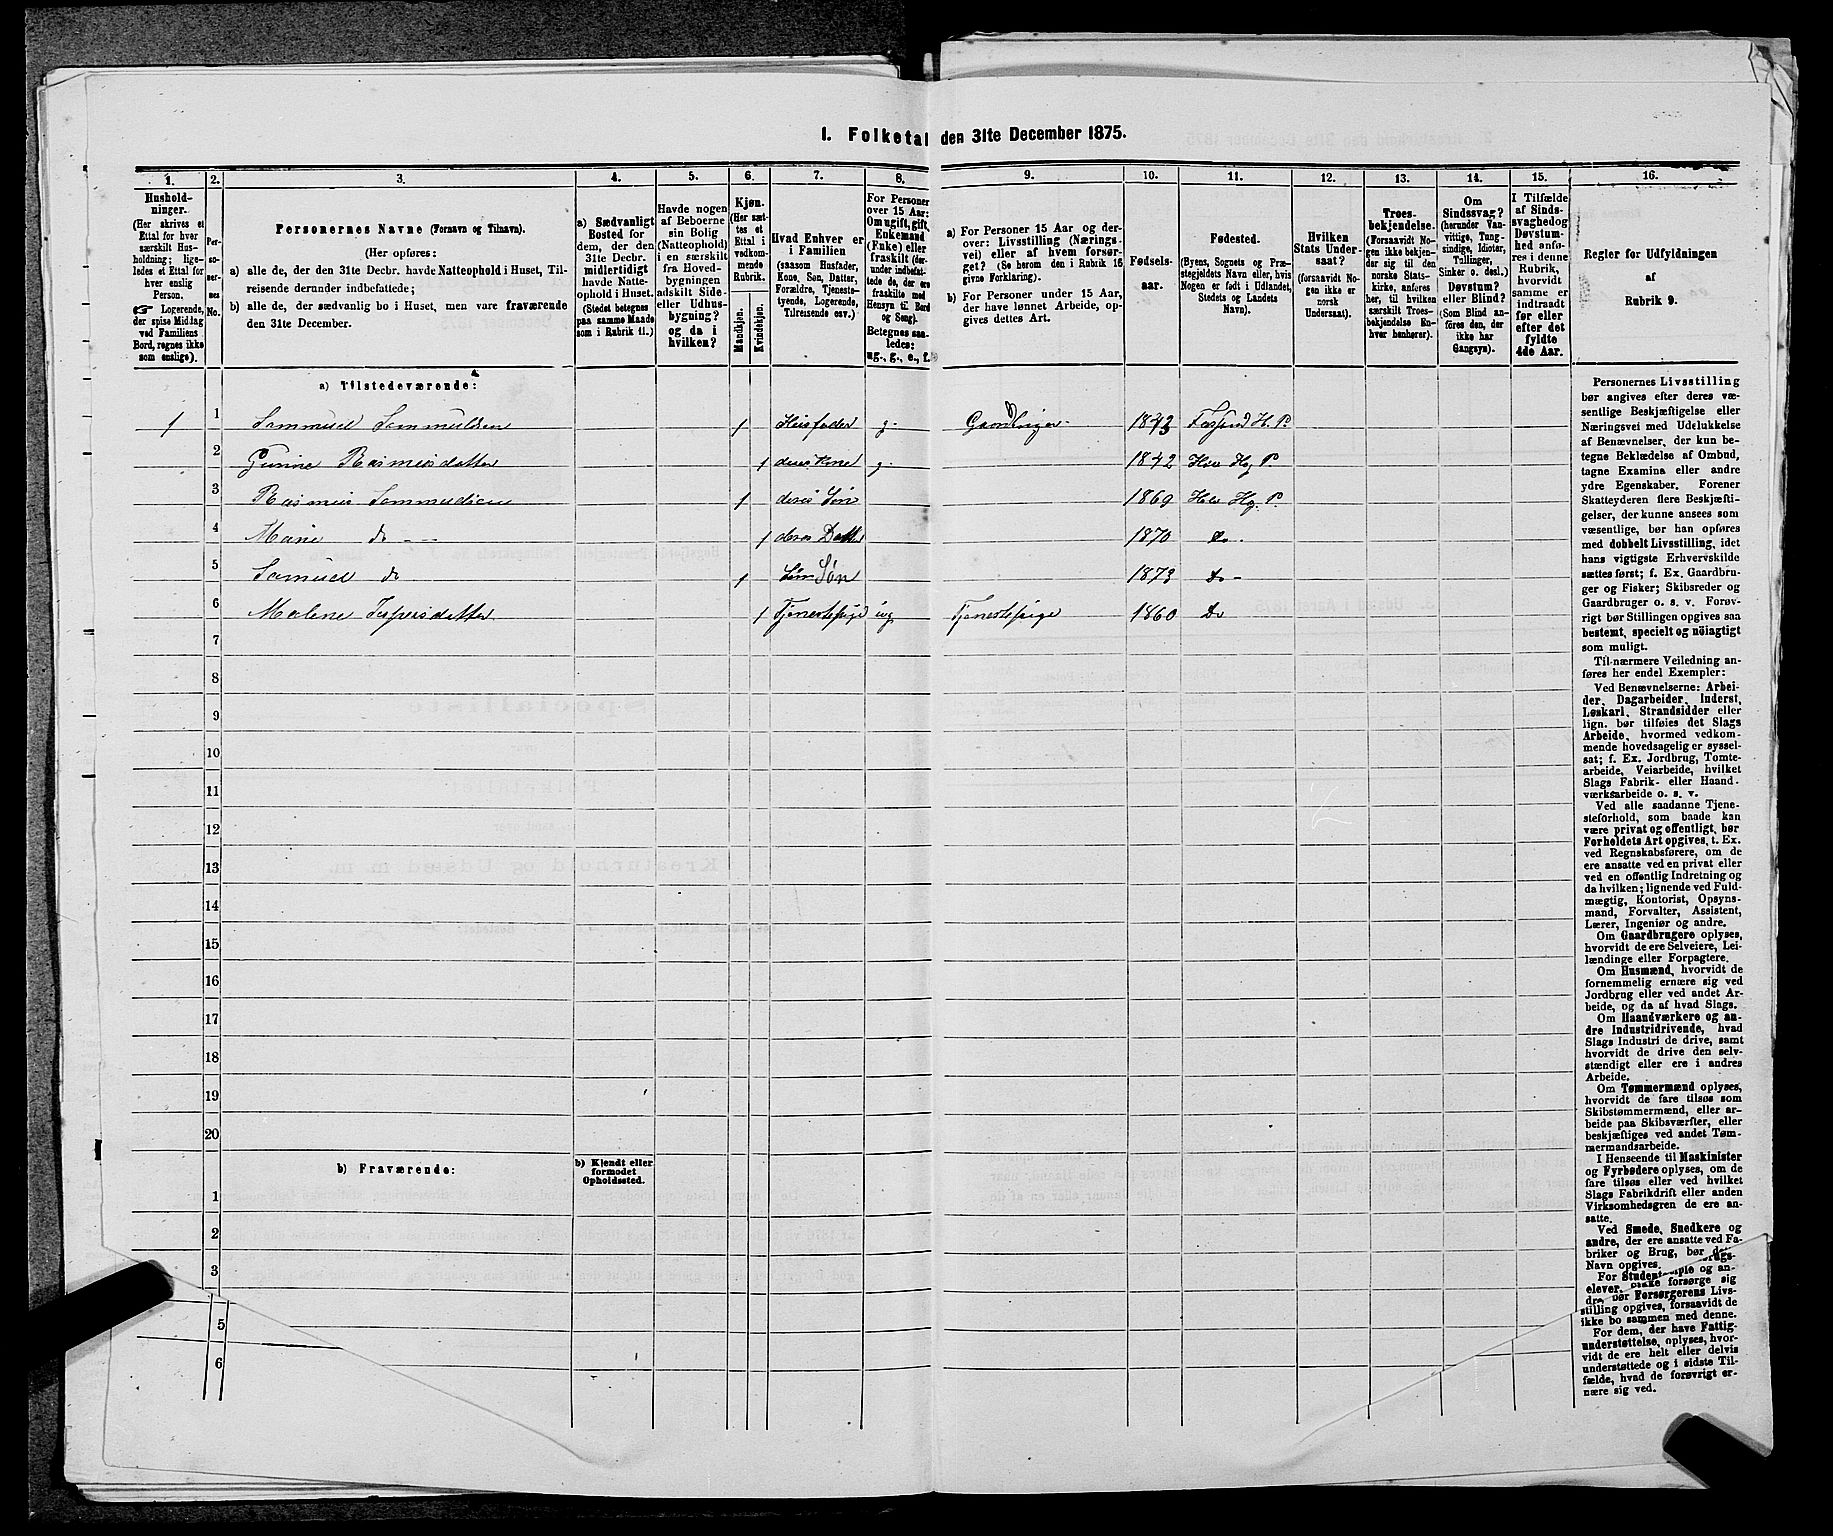 1. Folketal den 31te December 1875.
1.
2.
3.
4.
5.
6.
7.
8.
9.
10.
11.
12.
13.
14.
15.
16.
Husholdninger.
(Her skrives et Ettal for hver særskilt Husholdning; ligeledes et Ettal for hver enslig Person.
☞ Logerende, der spise Middag ved Familiens Bord, regnes ikke som enslige).
Personernes No.
Personernes Navne (Fornavn og Tilnavn).
(Her opføres:
a) alle de, der den 31te Decbr. havde Natteophold i Huset, Tilreisende derunder indbefattede;
b) alle de, der sædvanlig bo i Huset, men vare fraværende den 31te December.
a) Sædvanligt Bosted for dem, der den 31te Decbr. midlertidigt havde Natteophold i Huset.
(Stedet betegnes paa samme Maade som i Rubrik 11.)
Havde nogen af Beboerne sin Bolig (Natteophold) i en særskilt fra Hovedbygningen adskilt Side- eller Udhusbygning? og da i hvilken?
Kjøn.
(Her sættes et Ettal i vedkommende Rubrik.
Mandkjøn.
Kvindekjøn.
Hvad Enhver er i Familien
(saasom Husfader, Kone, Søn, Datter, Forældre, Tjenestetyende, Logerende, Tilreisende osv.)
For Personer over 15 Aar: Om ugift, gift, Enkemand (Enke) eller fraskilt (derunder indbefattede de, der ere fraskilte med Hensyn til Bord og Seng).
Betegnes saaledes: ug., g., e., f.
a) For Personer 15 Aar og derover: Livsstilling (Næringsvei) eller af hvem forsørget? (Se herom den i Rubrik 16 givne Forklaring).
b) For Personer under 15 Aar, der have lønnet Arbeide, opgives dettes Art.
Fødselsaar.
Fødested.
(Byens, Sognets og Præstegjeldets Navn, eller, hvis Nogen er født i Udlandet, Stedets og Landets Navn).
Hvilken Stats Undersaat?
(forsaavidt Nogen ikke er norsk Undersaat).
Troesbekjendelse.
(Forsaavidt Nogen ikke bekjender sig til den norske Statskirke, anføres her, til hvilken særskilt Troesbekjendelse Enhver henhører).
Om Sindssvag? (herunder Vanvittige, Tungsindige, Idioter, Tullinger, Sinker o. desl.) Døvstum? eller Blind? (Som Blind anføres den, der ikke har Gangsyn).
I Tilfælde af Sindssvaghed og Døvstumhed anføres i denne Rubrik, hvorvidt samme er indtraadt før eller efter det fyldte 4de Aar.
Regler for Udfyldningen af Rubrik 9.
a) Tilstedeværende:
1 1 Sammuel Sammuldsen 1 Husfader g. Gaardbruger 1843 Fossand H. P.
2 Gurine Rasmusdatter 1 deres Kone g. 1842 Hole Hg P.
3 Rasmus Sammudsen 1 deres Søn 1869 Hole Hg. P.
4 Marie do 1 deres Datter 1870 Do.
5 Samuel do 1 Søn 1873 Do
6 Malene Jespersdatter 1 Tjenestepige ug. Tjenestepige 1860 Do
7
8
9
10
11
12
13
14
15
16
17
18
19
20
b) Fraværende:
b) Kjendt eller formodet Opholdssted.
1
2
3
5
6
Personernes Livsstilling bør angives efter deres væsentlige Beskjæftigelse eller Næringsvei med Udelukkelse af Benævnelser, der kun betegne Beklædelse af Ombud, tagne Examina eller andre ydre Egenskaber. Forener Skatteyderen flere Beskjæftigelser, der kunne ansees som væsentlige, bør han opføres med dobbelt Livsstilling, idet hans vigtigste Erhvervskilde sættes først; f. Ex. Gaardbruger og Fisker; Skibsreder og Gaardbruger o. s. v. Forøvrigt bør Stillingen opgives saa bestemt, specielt og nöiagtigt som muligt.
Til nærmere Veiledning anføres her endel Exempler:
Ved Benævnelserne: Arbeider, Dagarbeider, Inderst, Løskarl, Strandsidder eller lign. bør tilføies det Slags Arbeide, hvormed vedkommende hovedsagelig er sysselsat; f. Ex. Jordbrug, Tomtearbeide, Veiarbeide, hvilket Slags Fabrik- eller Haandværksarbeide o. s. v.
Ved alle saadanne Tjenesteforhold, som baade kan være privat og offentligt, bør Forholdets Art opgives, t. Ex. ved Regnskabsførere, om de ere ansatte ved en privat eller ved en offentlig Indretning og da hvilken; lignende ved Fuldmægtig, Kontorist, Opsynsmand, Forvalter, Assistent, Lærer, Ingeniør og andre.
Om Gaardbrugere oplyses, hvorvidt de ere Selveiere, Leilændinge eller Forpagtere.
Om Husmænd, hvorvidt de fornemmelig ernære sig ved Jordbrug eller ved andet Arbeide, og da af hvad Slags.
Om Haandværkere og andre Industridrivende, hvad Slags Industri de drive, samt hvorvidt de drive den selvstændigt eller ere i andres Arbeide.
Om Tømmermænd oplyses, hvorvidt de fare tilsøs som Skibstømmermænd, eller arbeide paa Skibsværfter, eller beskjæftiges ved andet Tømmermandsarbeide.
I Henseende til Maskinister og Fyrbødere oplyses, om de fare tilsøs eller ved hvilket Slags Fabrikdrift eller anden Virksomhedsgren de ere ansatte.
Ved Smede, Snedkere og andre, der ere ansatte ved Fabriker og Brug, bør Navn opgives.
For og anelever, forsørge sig bør Forsørgerens Livsstilling opgives, forsaavidt de ikke bo sammen med denne.
For dem, der have Fattigunderstøttelse, oplyses, hvorvidt de ere helt eller delvis understøttede og i sidste Tilfælde, hvad de forøvrigt ernære sig ved.